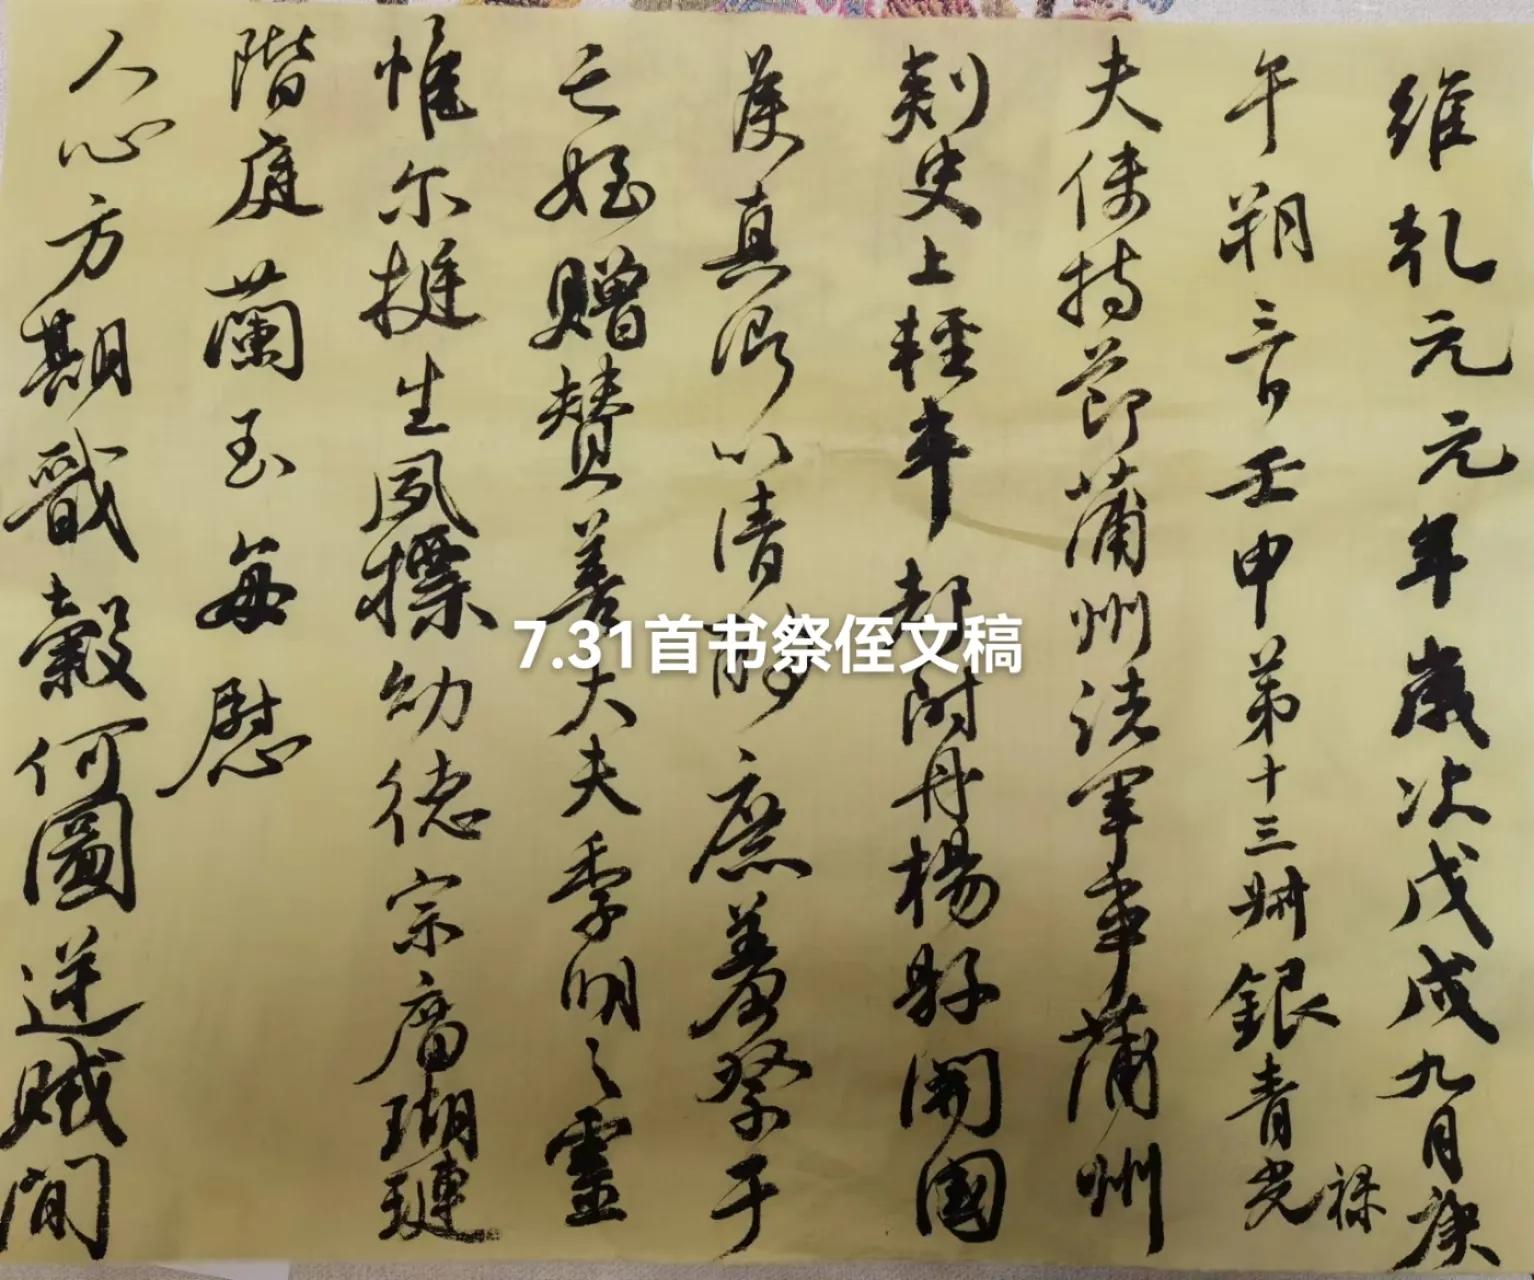 維乹元元年歲次戊戌九月庚
午朔三日壬申第十三𠦑銀青光
禄
夫使持節蒲州諸軍事蒲州
刺史上輕車都尉丹楊縣開國
侯真卿以清酌庶羞祭于
亡姪贈贊善大夫季明之靈
惟尔挺生夙標幼德宗廟瑚璉
階庭蘭玉每慰
人心方期戩穀何圖逆賊間
7.31首书祭侄文稿